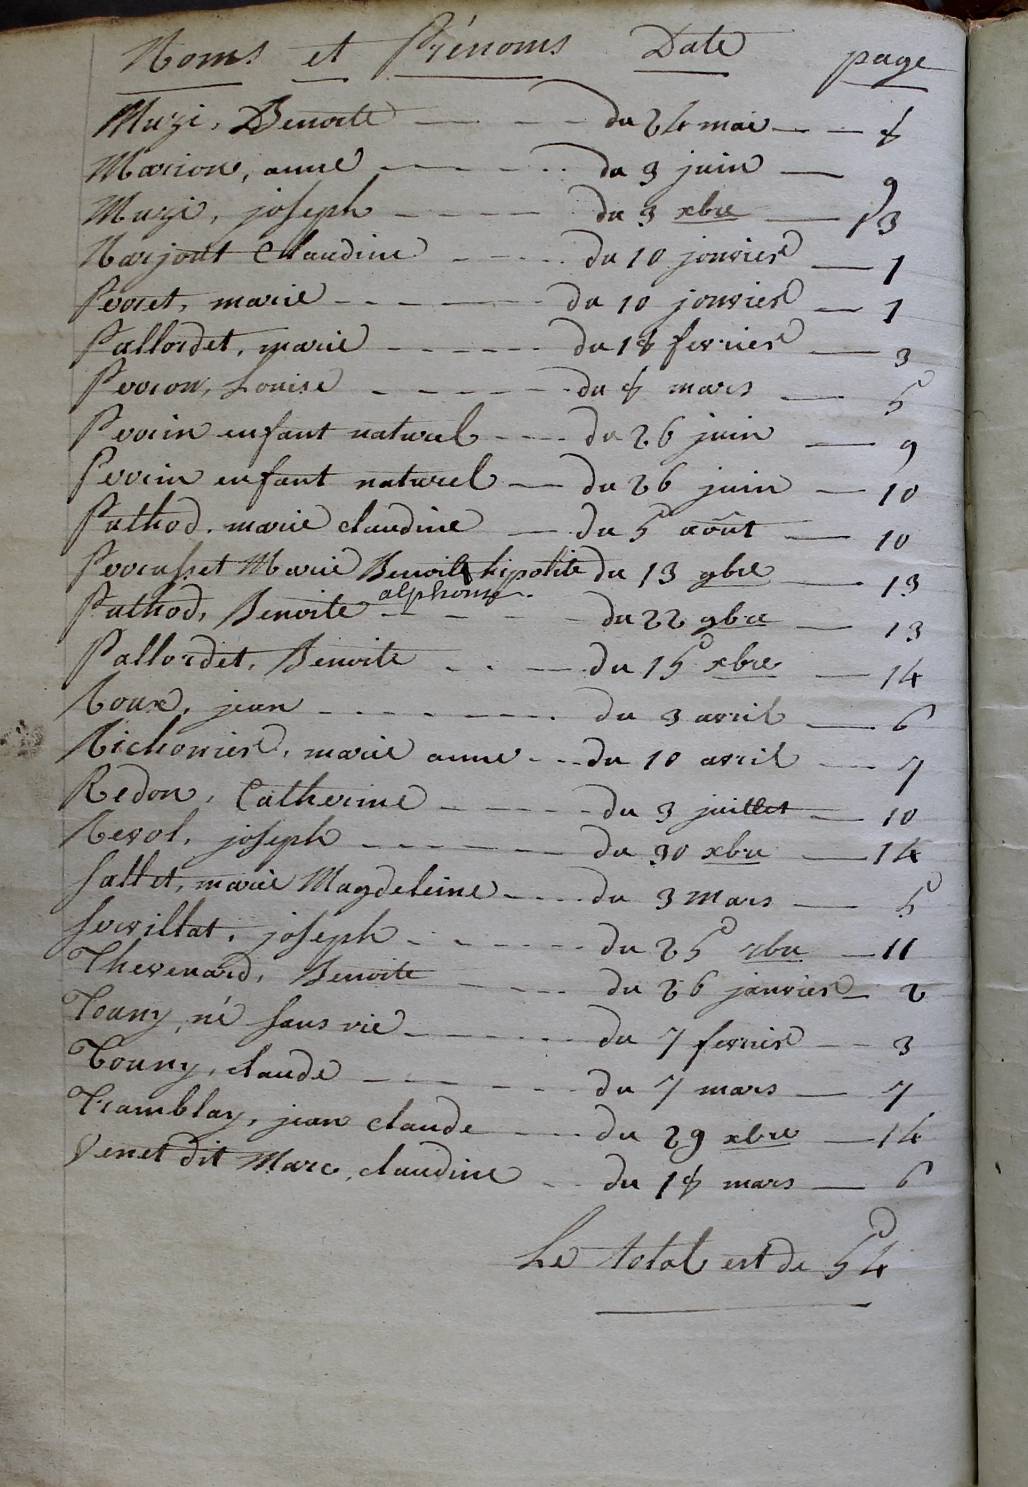 Noms et Prénoms Date page
Muzi, Benoite du 24 mai 8
Marion, anne du 3 juin 9
Muzi, joseph du 3 xbre 13
Narjout Claudine du 10 janvier 1
Perret, marie du 10 janvier 1
Pallordet, marie du 18 fevrier 3
Perron, Louise du 8 mars 5
Perrin enfant naturel du 26 juin 9
Perrin enfant naturel du 26 juin 10
Pathod, marie claudine du 5 août 10
Perrusset Marie Benoite hipolite du 13 9bre 13
alphonse
Pathod, Benoite du 22 9bre 13
Pallordet, Benoite du 15 xbre 14
Roux, jean du 3 avril 6
Richonier, marie anne du 10 avril 7
Redon, Catherine du 3 juillet 10
Revol, joseph du 30 xbre 14
Sallet, marie Magdeleine du 3 mars 5
Servillat, joseph du 25 7bre 11
Thevenard, Benoite du 26 janvier 2
Touny, né sans vie du 7 fevrier 3
Touny, claude du 7 mars 7
Tramblay, jean claude du 29 xbre 14
Venet dit Marc, claudine du 18 mars 6
Le total est de 54